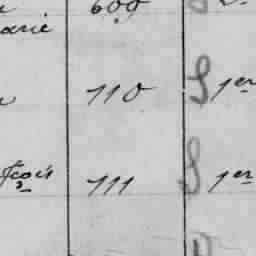 609
arie
110 S 1er
fçois 111 S 1er